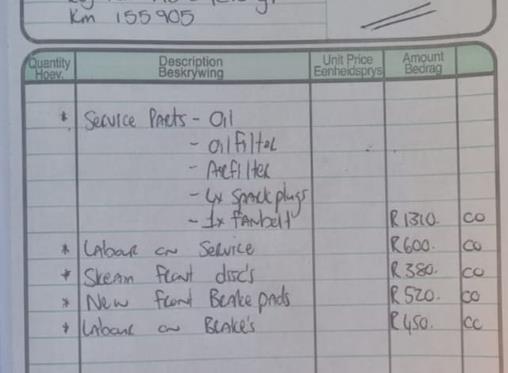 Km 155905
Quantity Description Unit Price Amount
Hoev. Beskrywing Eenheidsprys Bedrag
* Service Parts - Oil
- Oil Filter
- Airfilter
- 4x Sparkplugs
- 1x Fanbelt R1310. 00
* Labour on Service R600. 00
* Skeam front disc's R380. 00
* New front Brake pads R520. 00
* Labour on Brake's R450. 00